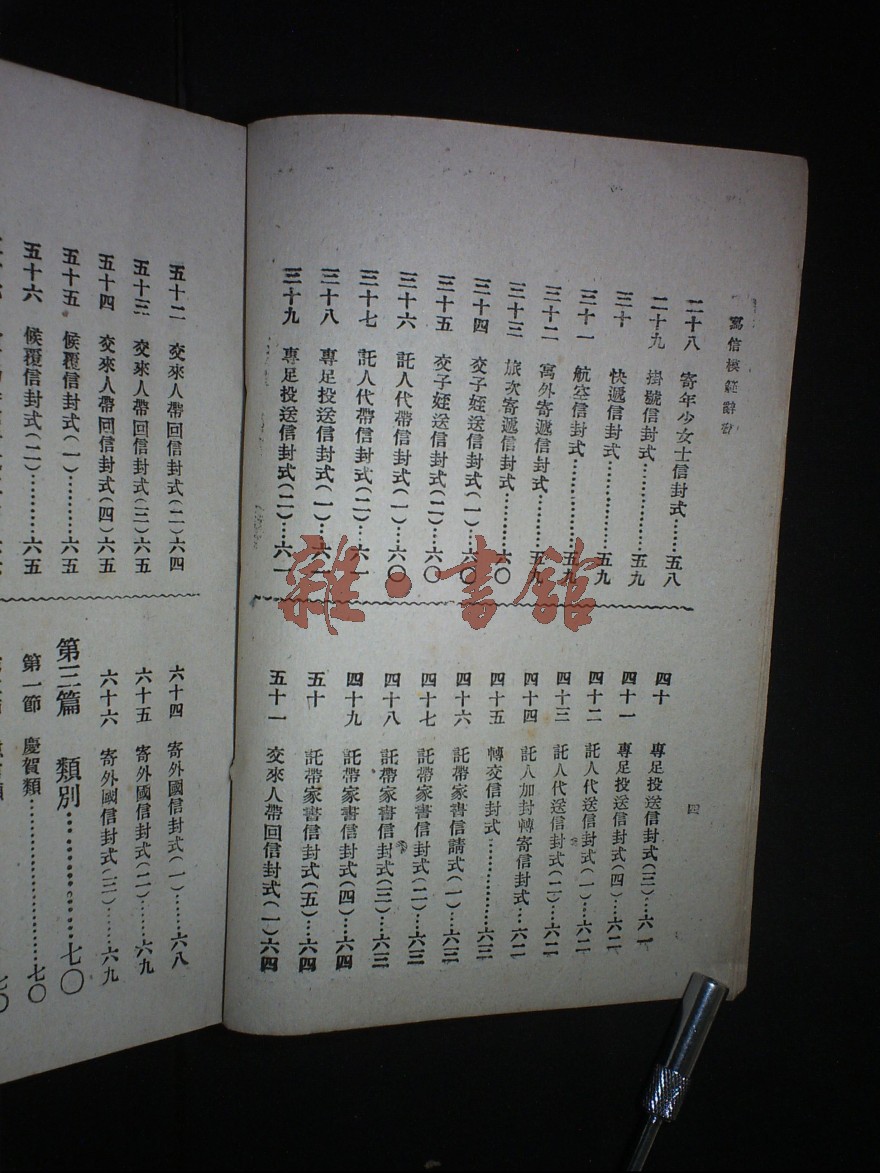 寫信模範辭
二十八 寄年少女士信封式……五八
二十九 掛號信封式…………五九
三十 快遞信封式…………五九
三十一 航空信封式…………五九
三十二 寓外寄遞信封式……五九
三十三 旅次寄遞信封式……六〇
三十四 交子姪送信封式(一)…六〇
三十五 交子姪送信封式(二)…六〇
三十六 託人代帶信封式(一)…六〇
三十七 託人代帶信封式(二)…六一
三十八 專足投送信封式(一)…六一
三十九 專足投送信封式(二)…六一
四
四十 專足投送信封式(三)…六一
四十一 專足投送信封式(四)…六二
四十二 託人代送信封式(一)…六二
四十三 託人代送信封式(二)…六二
四十四 託人加封轉寄信封式…六二
四十五 轉交信封式…………六三
四十六 託帶家書信請式(一)…六三
四十七 託帶家書信封式(二)…六三
四十八 託帶家書信封式(三)…六三
四十九 託帶家書信封式(四)…六四
五十 託帶家書信封式(五)…六四
五十一 交來人帶回信封式(一)六四
五十二 交來人帶回信封式(二)六四
五十三 交來人帶回信封式(三)六五
五十四 交來人帶回信封式(四)六五
五十五 候覆信封式(一)………六五
五十六 候覆信封式(二)………六五
六十四 寄外國信封式(一)……六八
六十五 寄外國信封式(二)……六九
六十六 寄外國信封式(三)……六九
第三篇 類別……………七〇
第一節 慶賀類………………七〇
雜·書館